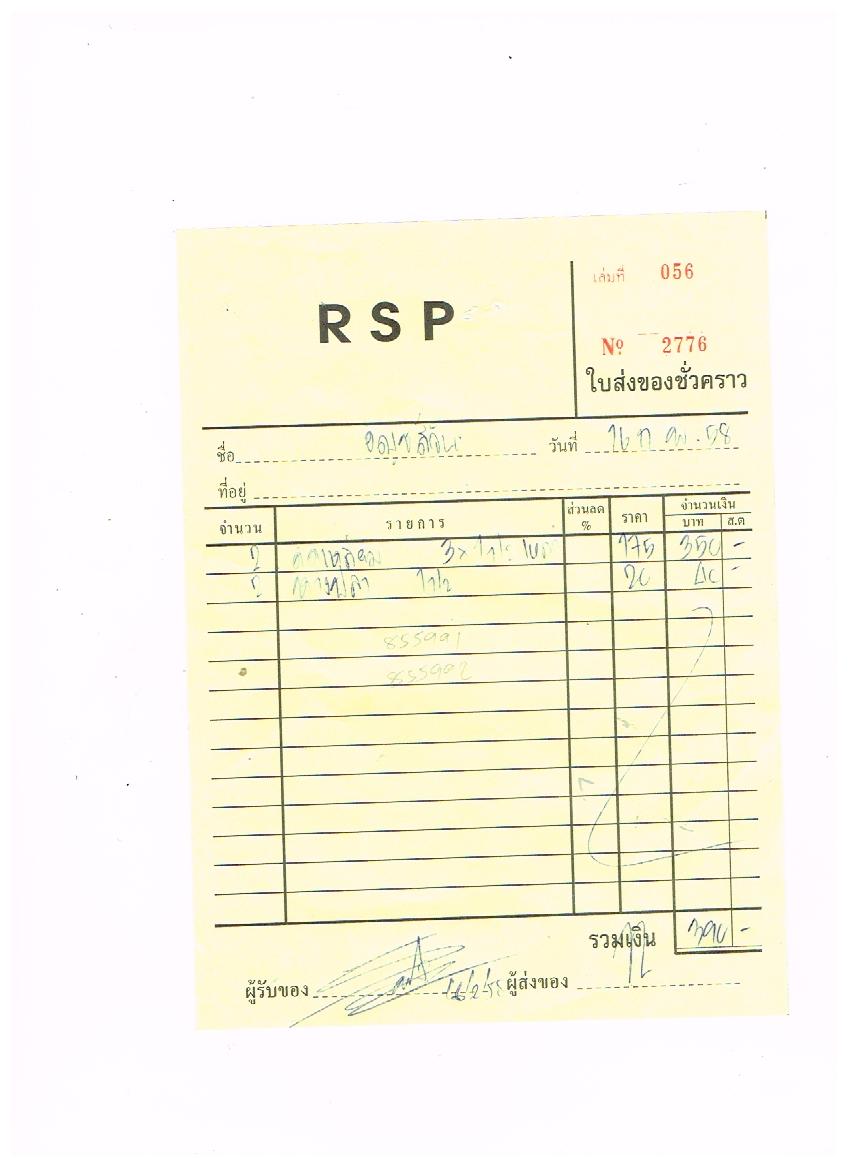 RSP
เล่มที่ 056
Nº 2776
ใบส่งของชั่วคราว
ชื่อ วันที่ 16 ก.พ. 58
ที่อยู่
จำนวน รายการ ส่วนลด % ราคา จำนวนเงิน
บาท ส.ต
2 3x 175 350 -
2 หางปลา 20 40 -
855991
855992
รวมเงิน 390 -
ผู้รับของ 16/2/58 ผู้ส่งของ